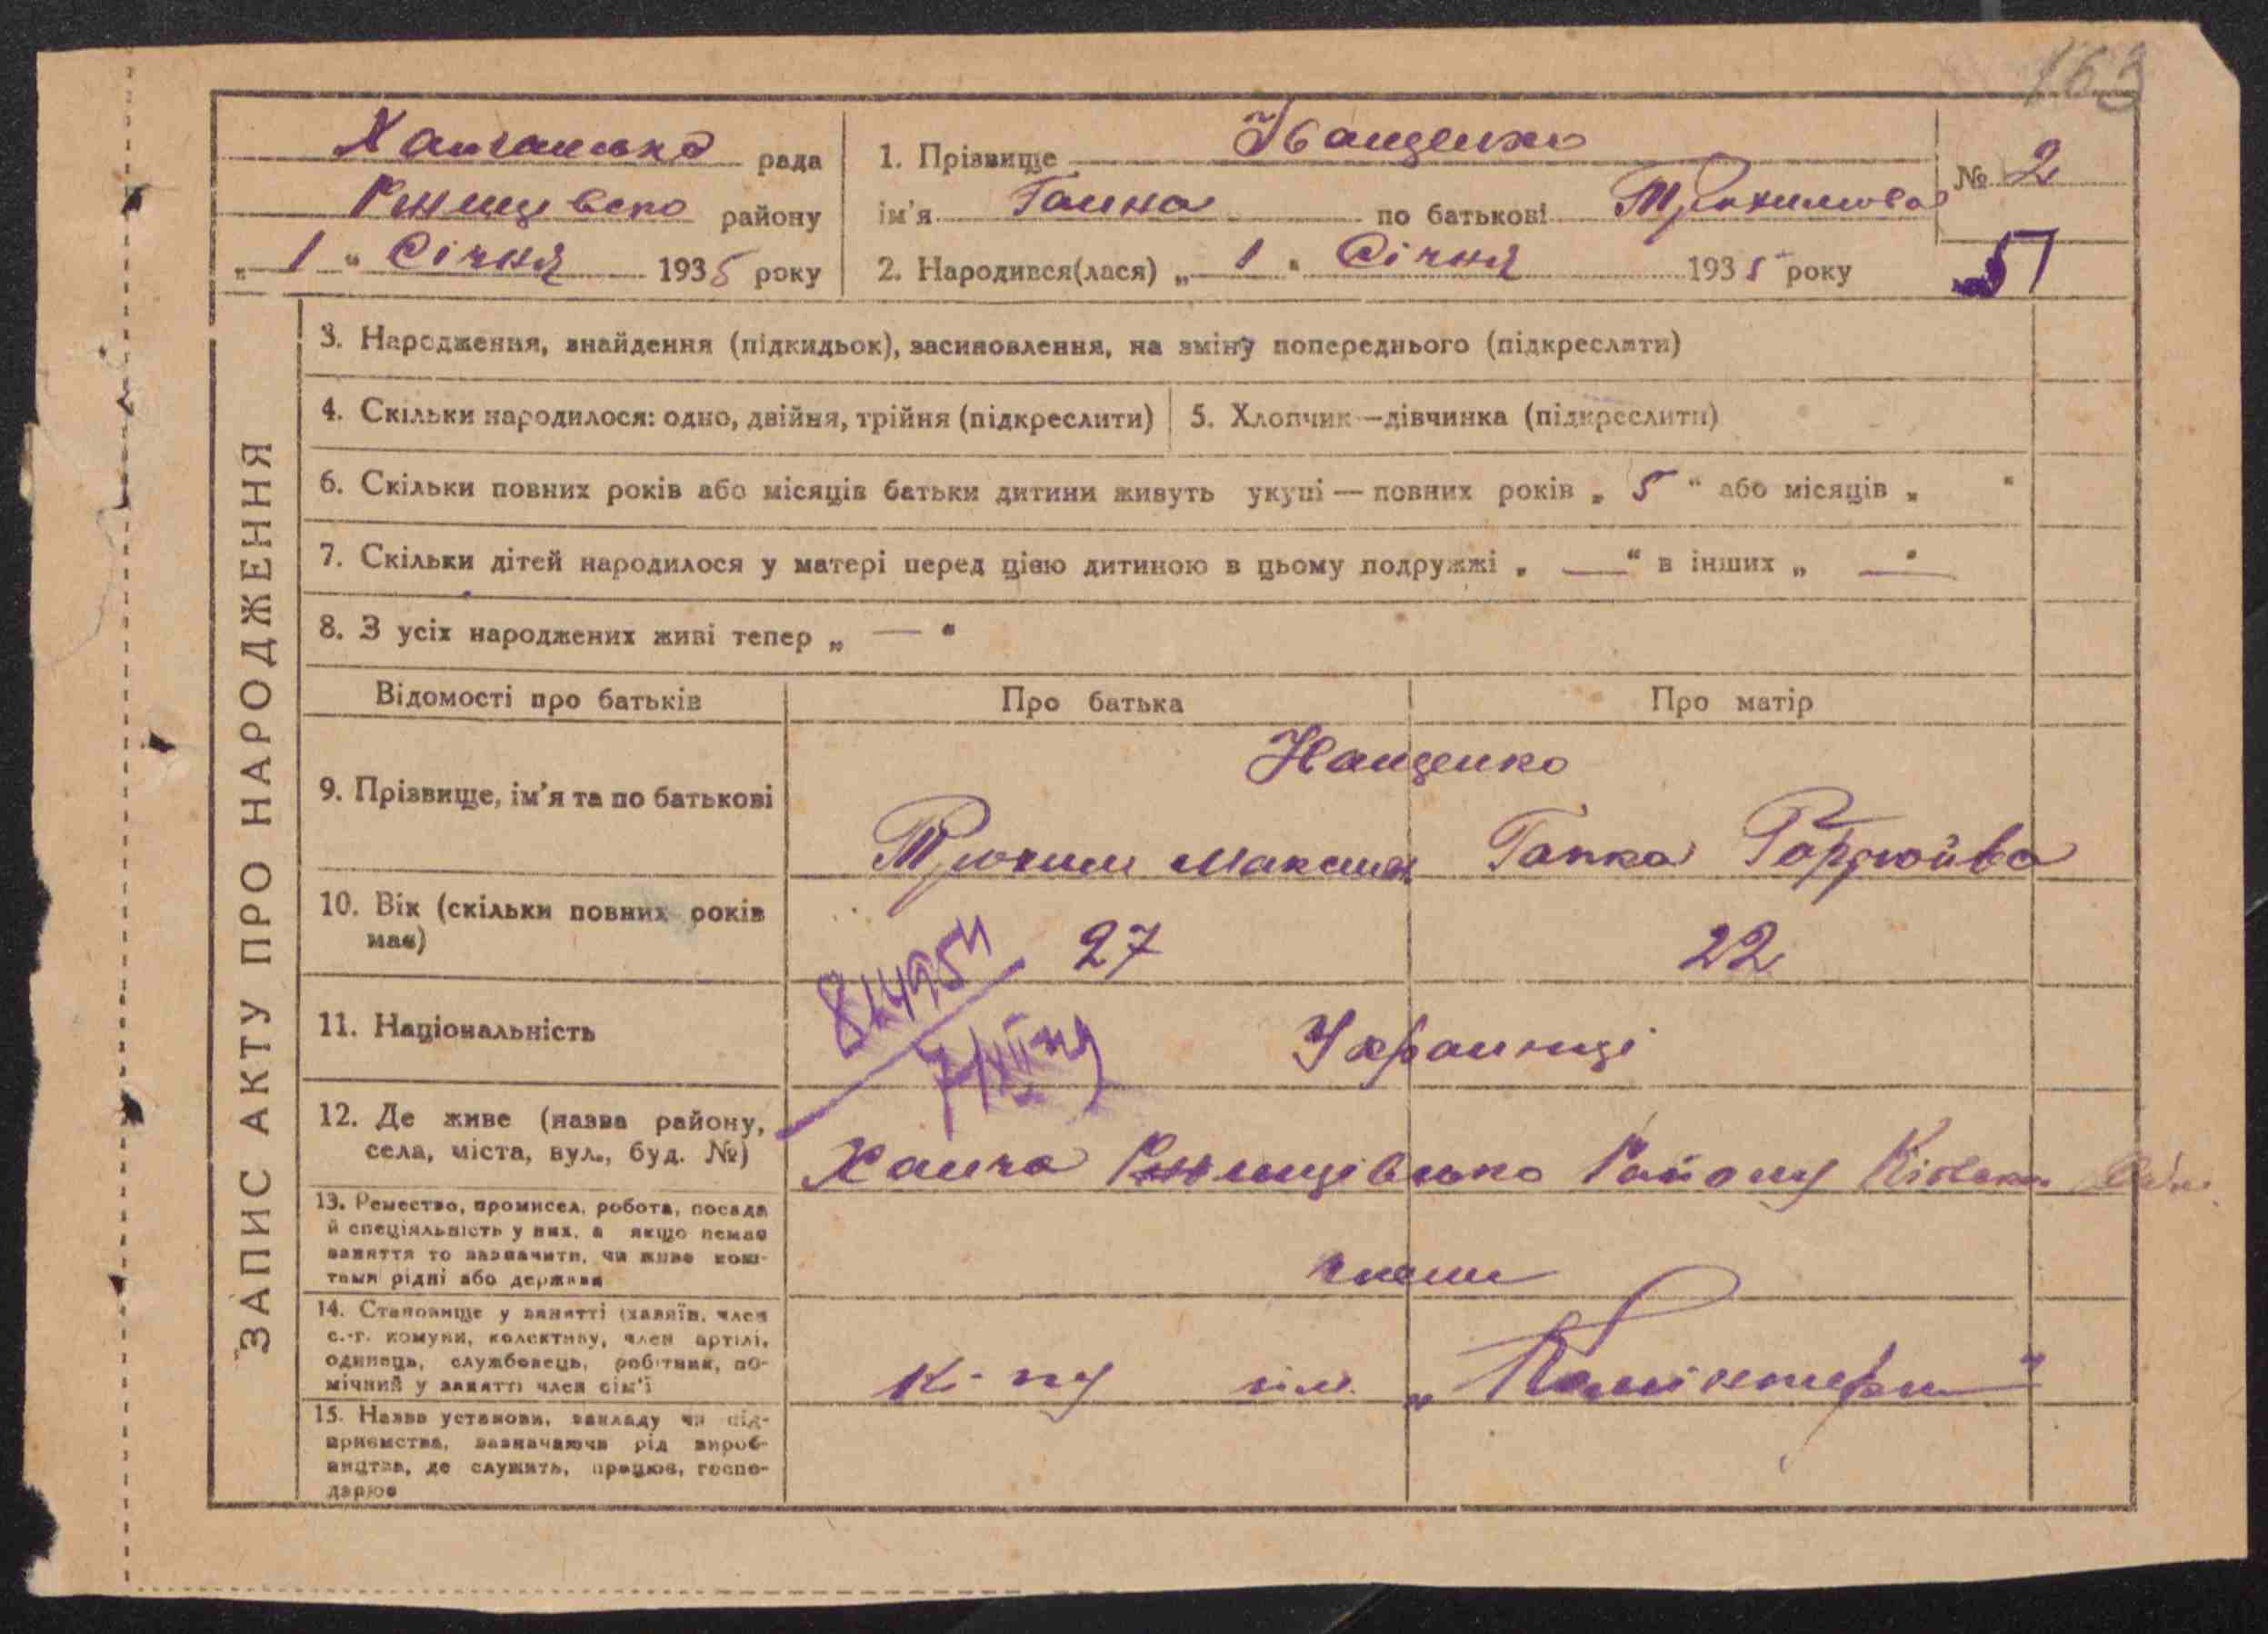 163
Ханчанська рада
Ржищівсько району
„ 1 “ Січня 1935 року
1. Прізвище Іващенко
ім'я Ганна по батькові Трохимова
2. Народився(лася) „ 1 “ Січня 1935 року
№ 2
51
ЗАПИС АКТУ ПРО НАРОДЖЕННЯ
3. Народження, знайдення (підкидьок), засиновлення, на зміну попереднього (підкреслити)
4. Скільки народилося: одно, двійня, трійня (підкреслити)
5. Хлопчик—дівчинка (підкреслити)
6. Скільки повних років або місяців батьки дитини живуть укупі — повних років „ 5 “ або місяців „ “
7. Скільки дітей народилося у матері перед цією дитиною в цьому подружжі „ — “ в інших „ — “
8. З усіх народжених живі тепер „ — “
Відомості про батьків Про батька Про матір
9. Прізвище, ім'я та по батькові
Іващенко
Трохим Максим. Гапка
10. Вік (скільки повних років
має)
27 22
11. Національність
Українці
12. Де живе (назва району,
села, міста, вул., буд. №)
Ханча Ржищівсько Району Київсько
13. Ремество, промисел, робота, посада
й спеціяльність у них, а якщо немає
заняття то зазначити, чи живе кош-
тами рідні або держави
14. Становище у занятті (хазяїн, член
с.-г. комуни, колективу, член артілі,
одинець, службовець, робітник, по-
мічний у занятті член сім'ї
к-пу ім. „Комінтерн“
15. Назва установи, закладу чи під-
приємства, зазначаючи рід вироб-
ництва, де служить, працює, госпо-
дарює